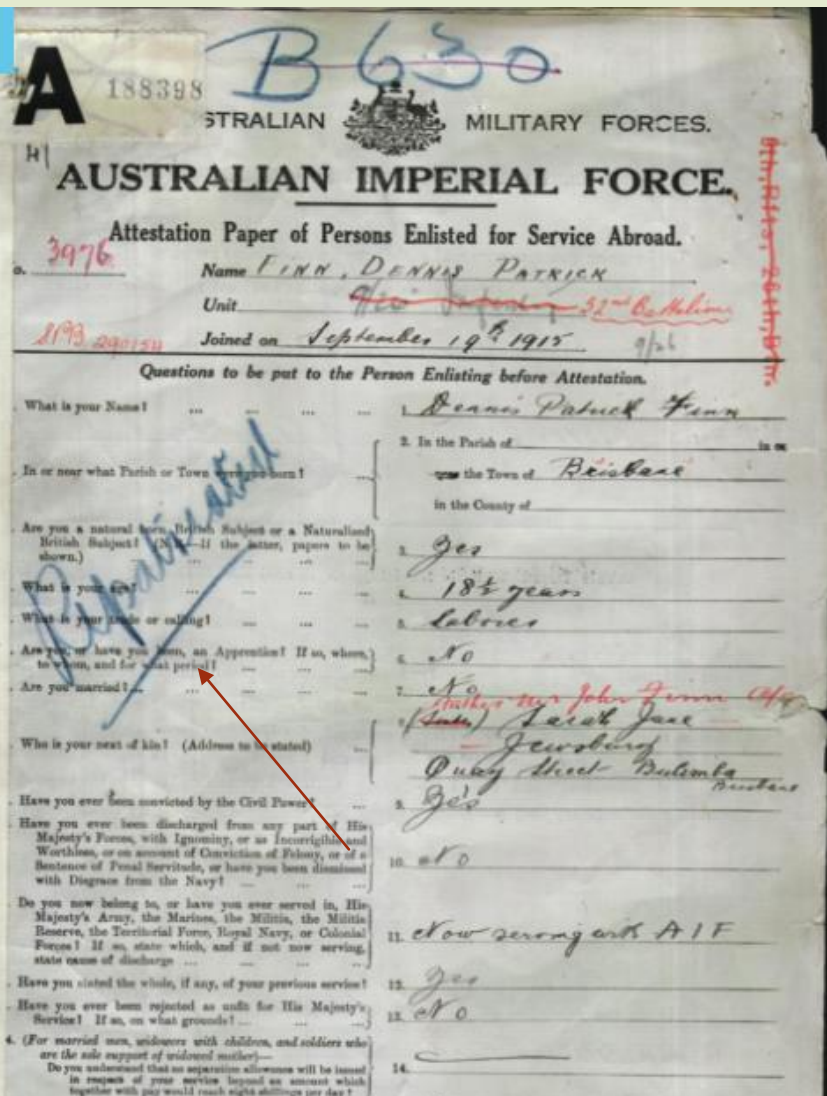 B 630
A 188398
STRALIAN MILITARY FORCES.
H1
AUSTRALIAN IMPERIAL FORCE.
Attestation Paper of Persons Enlisted for Service Abroad.
o. 3976
Name FINN, DENNIS PATRICK
Unit 32nd Battalion
Joined on September 19th 1915 9/26
Questions to be put to the Person Enlisting before Attestation.
What is your Name? ... ... ... ... 1. Dennis Patrick Finn
2. In the Parish of in or
In or near what Parish or Town were you born? ... the Town of Brisbane
in the County of
Are you a natural born British Subject or a Naturalised
British Subject? (N.B.—If the latter, papers to be
shown.) ... ... ... 3. Yes
What is your age? ... ... ... 4. 18½ years
What is your trade or calling? ... ... ... 5. Laborer
Are you, or have you been, an Apprentice? If so, where,
to whom, and for what period? ... ... ... 6. No
Are you married? ... ... ... ... 7. No
Repatriated
Father Mr John Finn
8. (Sister) Sarah Jane
Who is your next of kin? (Address to be stated) ...
Quay Street Bulimba
Brisbane
Have you ever been convicted by the Civil Power? ... 9. Yes
Have you ever been discharged from any part of His
Majesty's Forces, with Ignominy, or as Incorrigible and
Worthless, or on account of Conviction of Felony, or of a
Sentence of Penal Servitude, or have you been dismissed
with Disgrace from the Navy? ... ... ... 10. No
Do you now belong to, or have you ever served in, His
Majesty's Army, the Marines, the Militia, the Militia
Reserve, the Territorial Force, Royal Navy, or Colonial
Forces? If so, state which, and if not now serving,
state cause of discharge ... ... ... 11. Now serving with AIF
Have you stated the whole, if any, of your previous service? 12. Yes
Have you ever been rejected as unfit for His Majesty's
Service? If so, on what grounds? ... ... ... 13. No
4. (For married men, widowers with children, and soldiers who
are the sole support of widowed mother)—
Do you understand that no separation allowance will be issued
in respect of your service beyond an amount which
together with pay would reach eight shillings per day? 14.